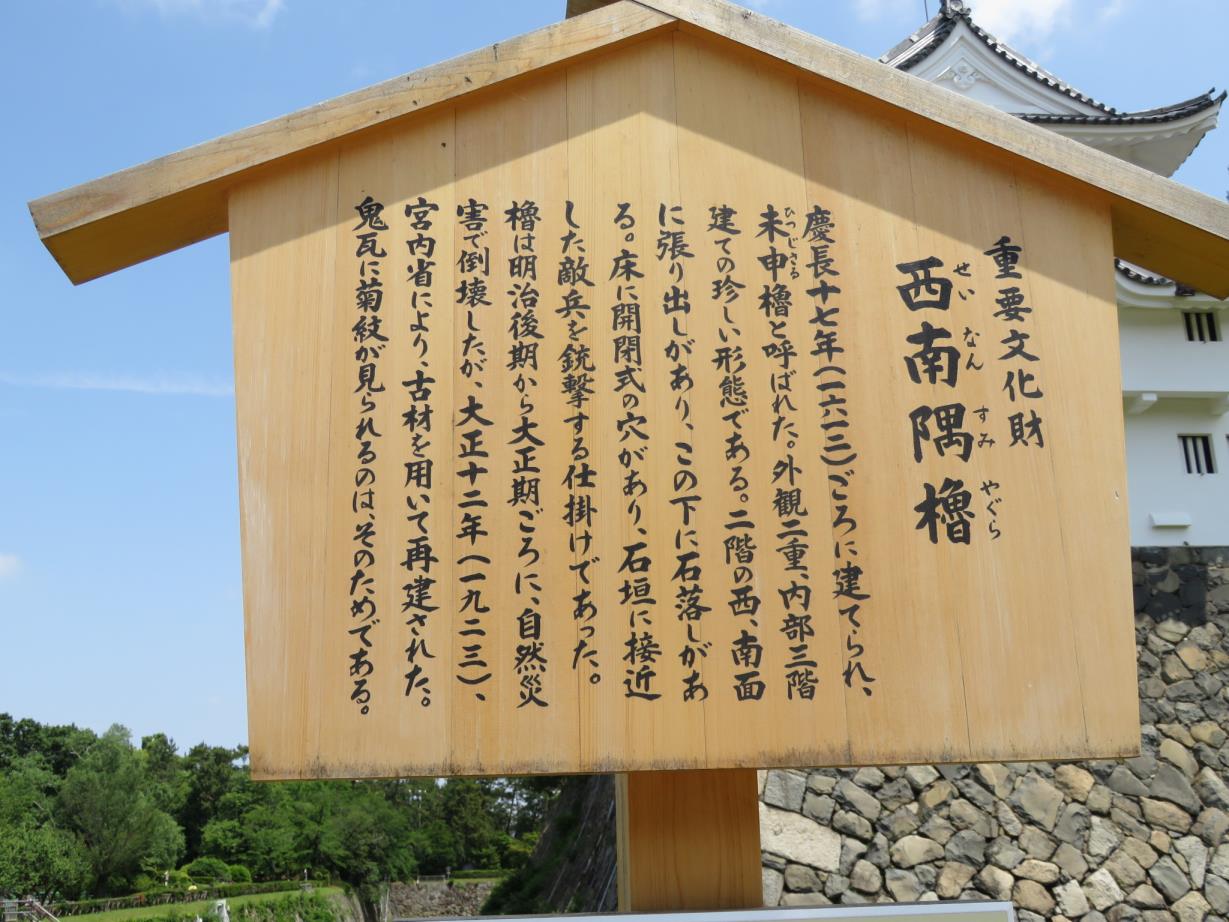 重要文化財
西南隅櫓
せいなんすみやぐら
慶長十七年(一六一二)ごろに建てられ、
未申櫓と呼ばれた。外観二重、内部三階
ひつじさる
建ての珍しい形態である。二階の西、南面
に張り出しがあり、この下に石落しがあ
る。床に開閉式の穴があり、石垣に接近
した敵兵を銃撃する仕掛けであった。
櫓は明治後期から大正期ごろに、自然災
害で倒壊したが、大正十二年(一九二三)、
宮内省により、古材を用いて再建された。
鬼瓦に菊紋が見られるのは、そのためである。